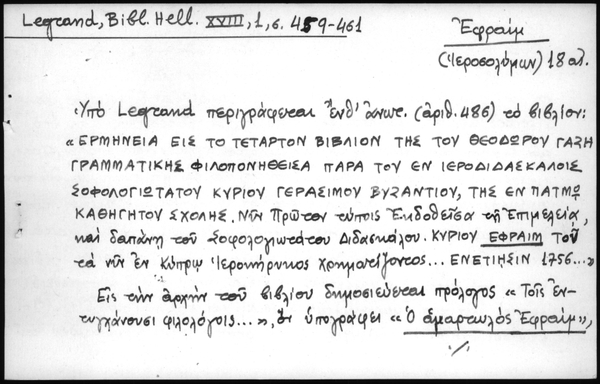 Legrand, Bibl. Hell. XVIII, 1, σ. 459-461
Ἐφραὶμ
(Ἱεροσολύμων) 18 αἰ.
Ὑπὸ Legrand περιγράφεται ἔνθ' ἀνωτ. (ἀριθ. 486) τὸ βιβλίον:
« ΕΡΜΗΝΕΙΑ ΕΙΣ ΤΟ ΤΕΤΑΡΤΟΝ ΒΙΒΛΙΟΝ ΤΗΣ ΤΟΥ ΘΕΟΔΩΡΟΥ ΓΑΖΗ
ΓΡΑΜΜΑΤΙΚΗΣ ΦΙΛΟΠΟΝΗΘΕΙΣΑ ΠΑΡΑ ΤΟΥ ΕΝ ΙΕΡΟΔΙΔΑΣΚΑΛΟΙΣ
ΣΟΦΟΛΟΓΙΩΤΑΤΟΥ ΚΥΡΙΟΥ ΓΕΡΑΣΙΜΟΥ ΒΥΖΑΝΤΙΟΥ, ΤΗΣ ΕΝ ΠΑΤΜῼ
ΚΑΘΗΓΗΤΟΥ ΣΧΟΛΗΣ. Νῦν Πρῶτον τύποις Ἐκδοθεῖσα τῇ Ἐπιμελείᾳ,
καὶ δαπάνῃ τοῦ Σοφολογιωτάτου Διδασκάλου. ΚΥΡΙΟΥ ΕΦΡΑΙΜ ΤΟῦ
τὰ νῦν ἐν Κύπρῳ Ἱεροκήρυκος χρηματίζοντος... ΕΝΕΤΙΗΣΙΝ 1756... »
Εἰς τὴν ἀρχὴν τοῦ βιβλίου δημοσιεύεται πρόλογος « Τοῖς ἐν-
τυγχάνουσι φιλολόγοις... », ὃν ὑπογράφει « Ὁ ἁμαρτωλὸς Ἐφραὶμ »,
./.